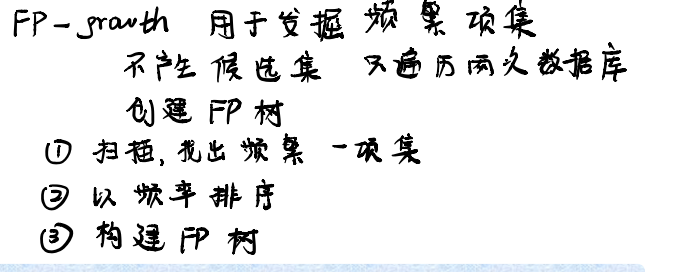 FP-growth 用于发掘 频繁项集
不产生候选集 只遍历两次数据库
创建 FP 树
① 扫描,找出频繁 一项集
② 以频率排序
③ 构建 FP 树